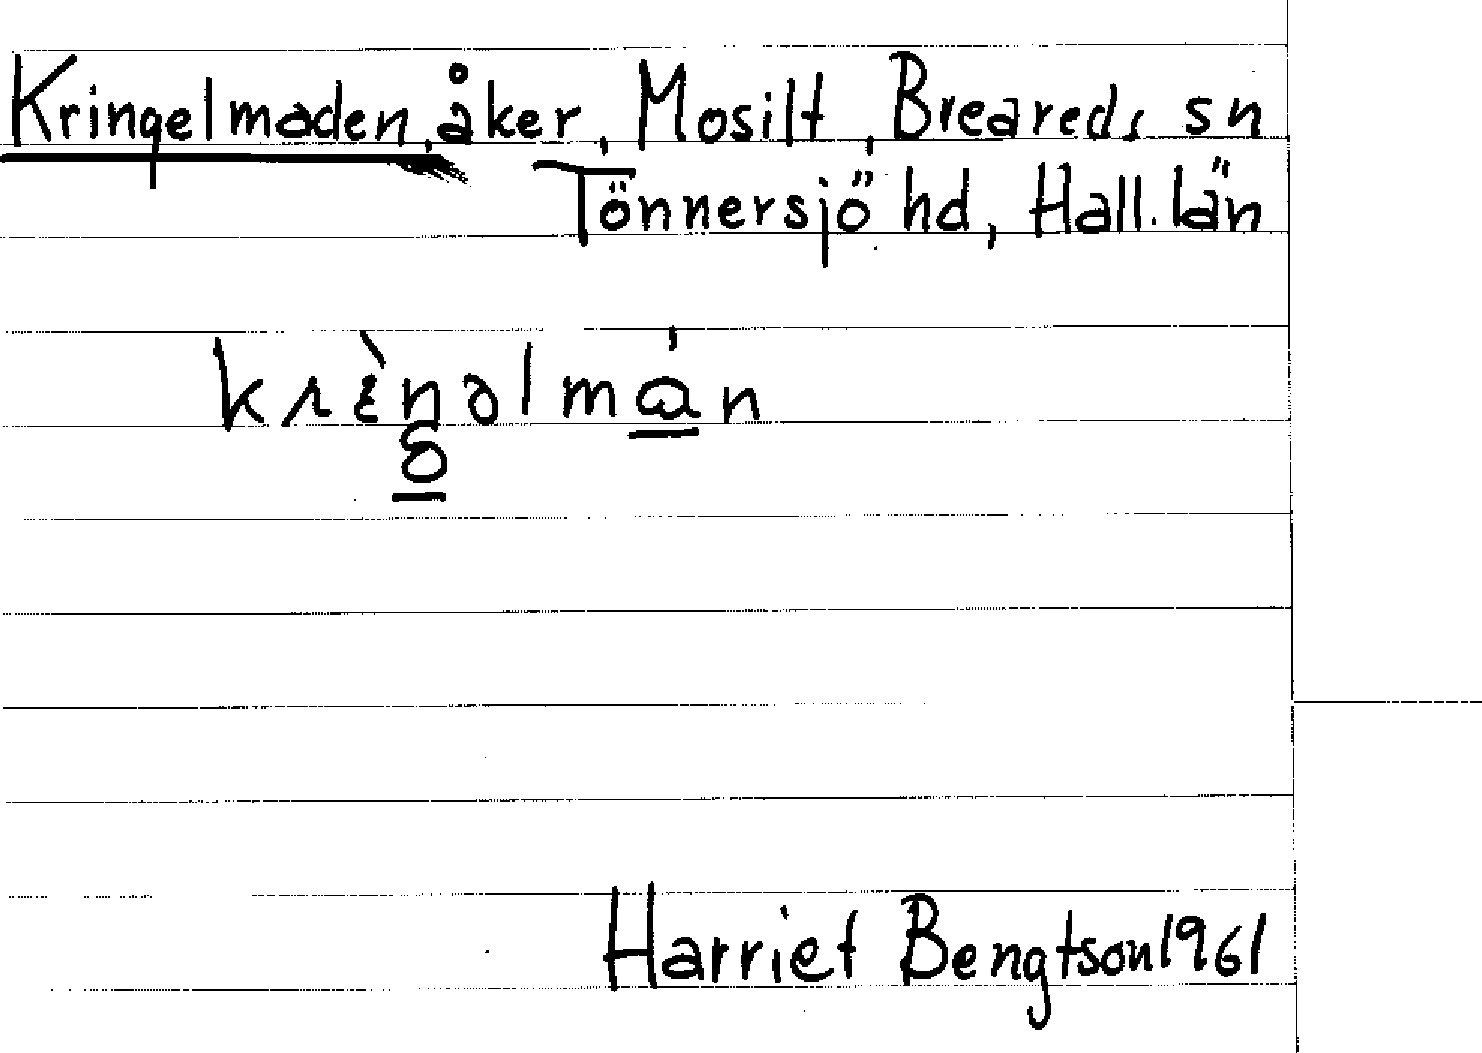 Kringelmaden, åker, Mosilt, Breareds sn
Tönnersjö hd, Hall. län
Harriet Bengtson 1961